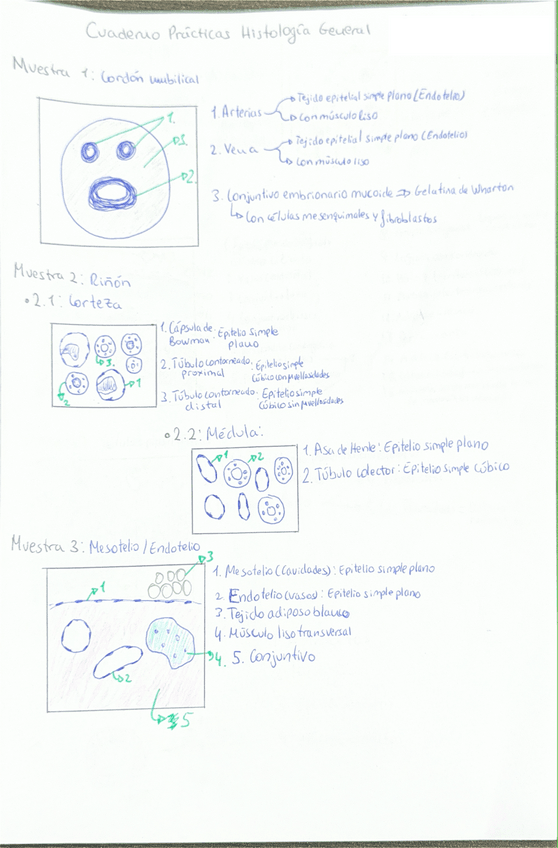 Cuaderno Prácticas Histología General
Muestra 1: Cordón umbilical
1.
3.
2.
1. Arterias
Tejido epitelial simple plano (Endotelio)
Con músculo liso
2. Vena
Tejido epitelial simple plano (Endotelio)
Con músculo liso
3. Conjuntivo embrionario mucoide ⇒ Gelatina de Wharton
Con células mesenquimales y fibroblastos
Muestra 2: Riñón
• 2.1: Corteza
3.
1
2
1. Cápsula de Bowman: Epitelio simple
plano
2. Túbulo contorneado: Epitelio simple
proximal Cúbico con
3. Túbulo contorneado: Epitelio simple
distal Cúbico sin
• 2.2: Médula:
1
2
1. Asa de Henle: Epitelio simple plano
2. Túbulo colector: Epitelio simple cúbico
Muestra 3: Mesotelio/Endotelio
3
1
2
4.
5
1. Mesotelio (Cavidades): Epitelio simple plano
2 Endotelio (vasos): Epitelio simple plano
3. Tejido adiposo blanco
4. Músculo liso transversal
5. Conjuntivo